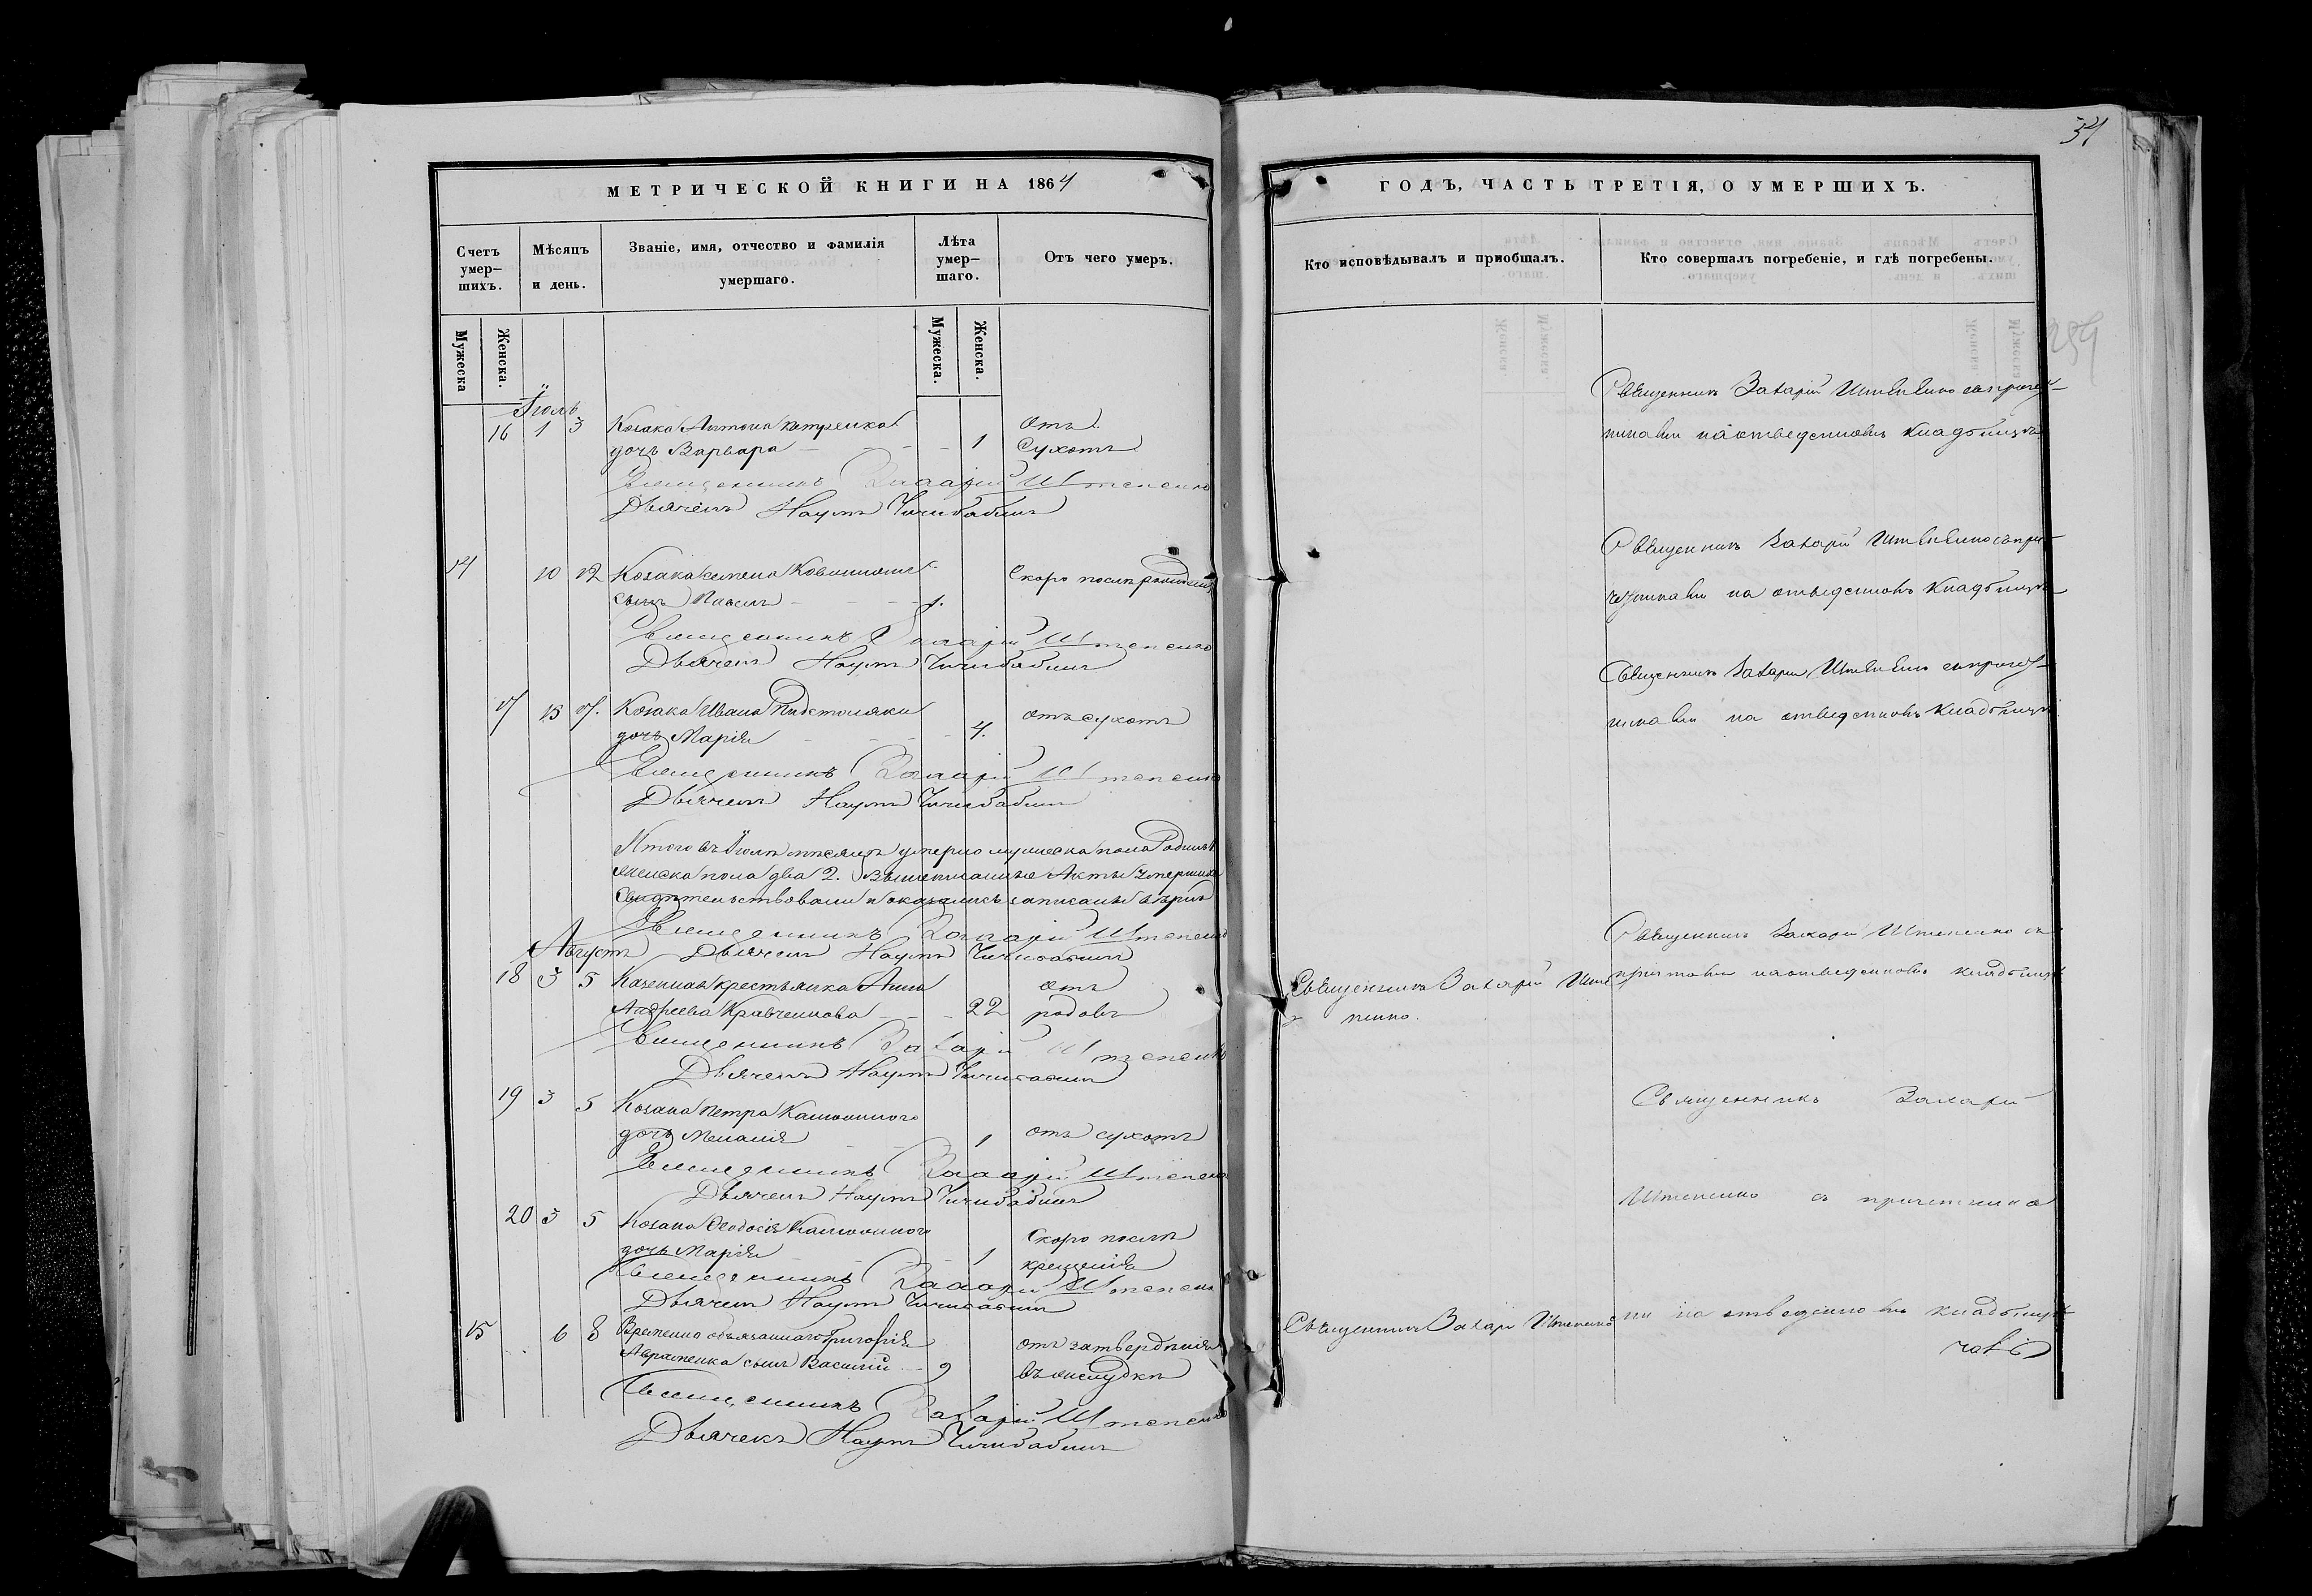 54
МЕТРИЧЕСКОЙ КНИГИ НА 1864
Счетъ умер-шихъ.
Мѣсяцъ и день.
Званіе, имя, отчество и фамилія умершаго.
Лѣта умер-шаго.
Отъ чего умеръ.
Мужеска
Женска.
Мужеска.
Женска.
Іюль
16 1 3 Козака Антона Петренка отъ
дочь Варвара 1 Сухотъ
Священникъ Захарій Штепенко
Дьячекъ Наумъ Чичибабинъ
14 10 12 Козака Скоро послѣ рожденія
сынъ Павелъ 1.
Священникъ Захарій Штепенко
Дьячекъ Наумъ Чичибабинъ
17 15 17. Козака Ивана отъ сухотъ
дочь Марія 4.
Священникъ Захарій Штепенко
Дьячекъ Наумъ Чичибабинъ
Итого въ Іюлѣ мѣсяцѣ умерло мужеска пола 1 одинъ
Женска пола два 2. Вышеписанные Акты умершихъ
Свидѣтельствовали и оказались записаны вѣрно
Священникъ Захарій Штепенко
Августъ Дьячекъ Наумъ Чичибабинъ
18 3 5 Казенная крестьянка Анна отъ
Андреева Кравченкова 22 родовъ
Священникъ Захарій Штепенко
Дьячекъ Наумъ Чичибабинъ
19 3 5 Козака Петра
дочь Меланія 1 отъ сухотъ
Священникъ Захарій Штепенко
Дьячекъ Наумъ Чичибабинъ
20 3 5 Козака Феодосія Скоро послѣ
дочь Марія 1 крещенія
Священникъ Захарій Штепенко
Дьячекъ Наумъ Чичибабинъ
15 6 8 Временно обязаннаго Григорія отъ затвердѣнія
Авраменка сынъ Василій 9 въ желудкѣ
Священникъ Захарій Штепенко
Дьячекъ Наумъ Чичибабинъ
ГОДЪ, ЧАСТЬ ТРЕТІЯ, О УМЕРШИХЪ.
Кто исповѣдывалъ и пріобщалъ.
Кто совершалъ погребеніе, и гдѣ погребены.
Священникъ Захарій Штепенко съ причет-
никами на отведенномъ кладбищѣ
Священникъ Захарій Штепенко съ при-
четниками на отведенномъ кладбищѣ
Священникъ Захарій Штепенко съ причет-
никами на отведенномъ кладбищѣ
Священникъ Захарій Штепенко съ
Священникъ Захарій Ште причтомъ на отведенномъ кладбищѣ
пенко.
Священникъ Захарій
Штепенко съ причетника
Священникъ Захарій Штепенко ми на отведенномъ кладбищѣ